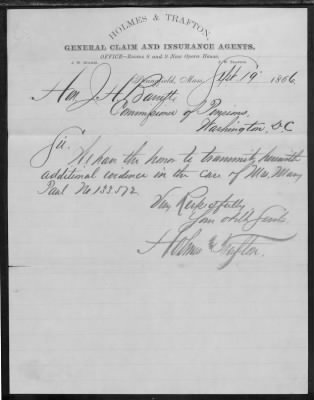 HOLMES & TRAFTON,
GENERAL CLAIM AND INSURANCE AGENTS,
OFFICE—Rooms 8 and 9 New Opera House,
Springfield, Mass., Sept 19 1866
Hon. J. H. Barrett
Commissioner of Pensions,
Washington, D.C
Sir.
We have the honor to transmit, herewith
additional evidence in the case of Mrs. Mary
Paul No 133.572.
Very Respectfully
Your Obdt Servts.
Holmes & Trafton.